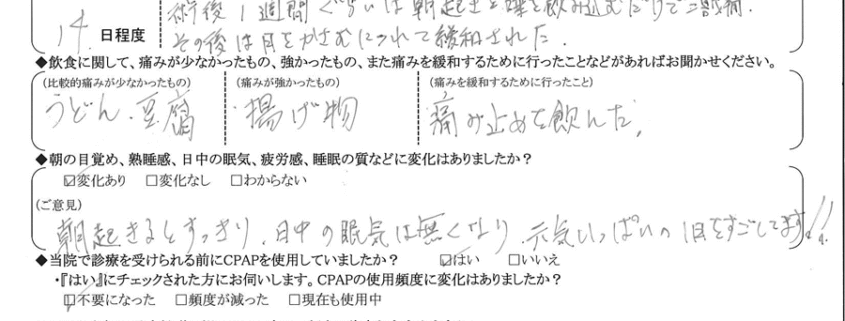 術後1週間ぐらいは朝起きと唾を飲み込むだけで激痛.
14 日程度
その後は日をかさむにつれて緩和された.
◆飲食に関して、痛みが少なかったもの、強かったもの、また痛みを緩和するために行ったことなどがあればお聞かせください。
(比較的痛みが少なかったもの) (痛みが強かったもの) (痛みを緩和するために行ったこと)
うどん.豆腐 揚げ物 痛み止めを飲んだ。
◆朝の目覚め、熟睡感、日中の眠気、疲労感、睡眠の質などに変化はありましたか?
☑変化あり □変化なし □わからない
(ご意見)
朝起きるとすっきり.日中の眠気は無くなり.元気いっぱいの1日をすごしてます!!
◆当院で診療を受けられる前にCPAPを使用していましたか? ☑はい □いいえ
・『はい』にチェックされた方にお伺いします。CPAPの使用頻度に変化はありましたか?
☑不要になった □頻度が減った □現在も使用中